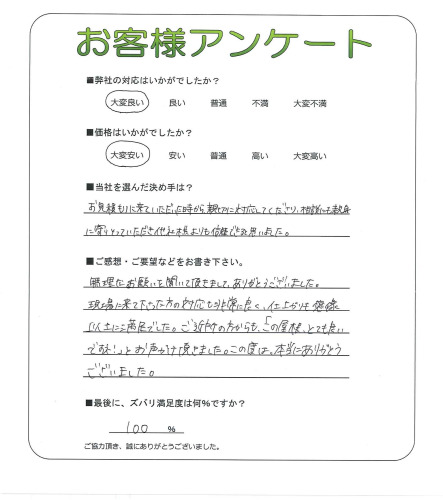 お客様アンケート
■弊社の対応はいかがでしたか？
大変良い 良い 普通 不満 大変不満
■価格はいかがでしたか？
大変安い 安い 普通 高い 大変高い
■当社を選んだ決め手は？
お見積もりに来ていただいた時から、親切に対応してくださり、相談にも親身
に寄りそっていただき他社様よりも信頼できると思いました。
■ご感想・ご要望などをお書き下さい。
無理なお願いを聞いて頂きまして、ありがとうございました。
現場に来て下さった方の対応も非常に良く、仕上がりも想像
以上に満足でした。ご近所の方からも、「この屋根、とても良い
ですね！」とお声がけ頂きました。この度は、本当にありがとう
ございました。
■最後に、ズバリ満足度は何％ですか？
100 ％
ご協力頂き、誠にありがとうございました。